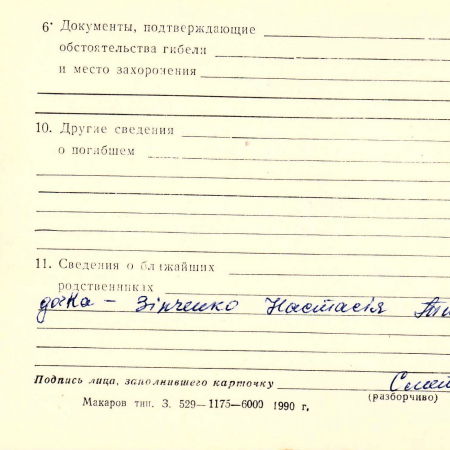 6• Документы, подтверждающие
обстоятельства гибели
и место захоронения
10. Другие сведения
о погибшем
11. Сведения о ближайших
родственниках
дочка – Зінченко Настасія
Подпись лица, заполнившего карточку
(разборчиво)
Макаров тип. З. 529—1175—6000 1990 г,